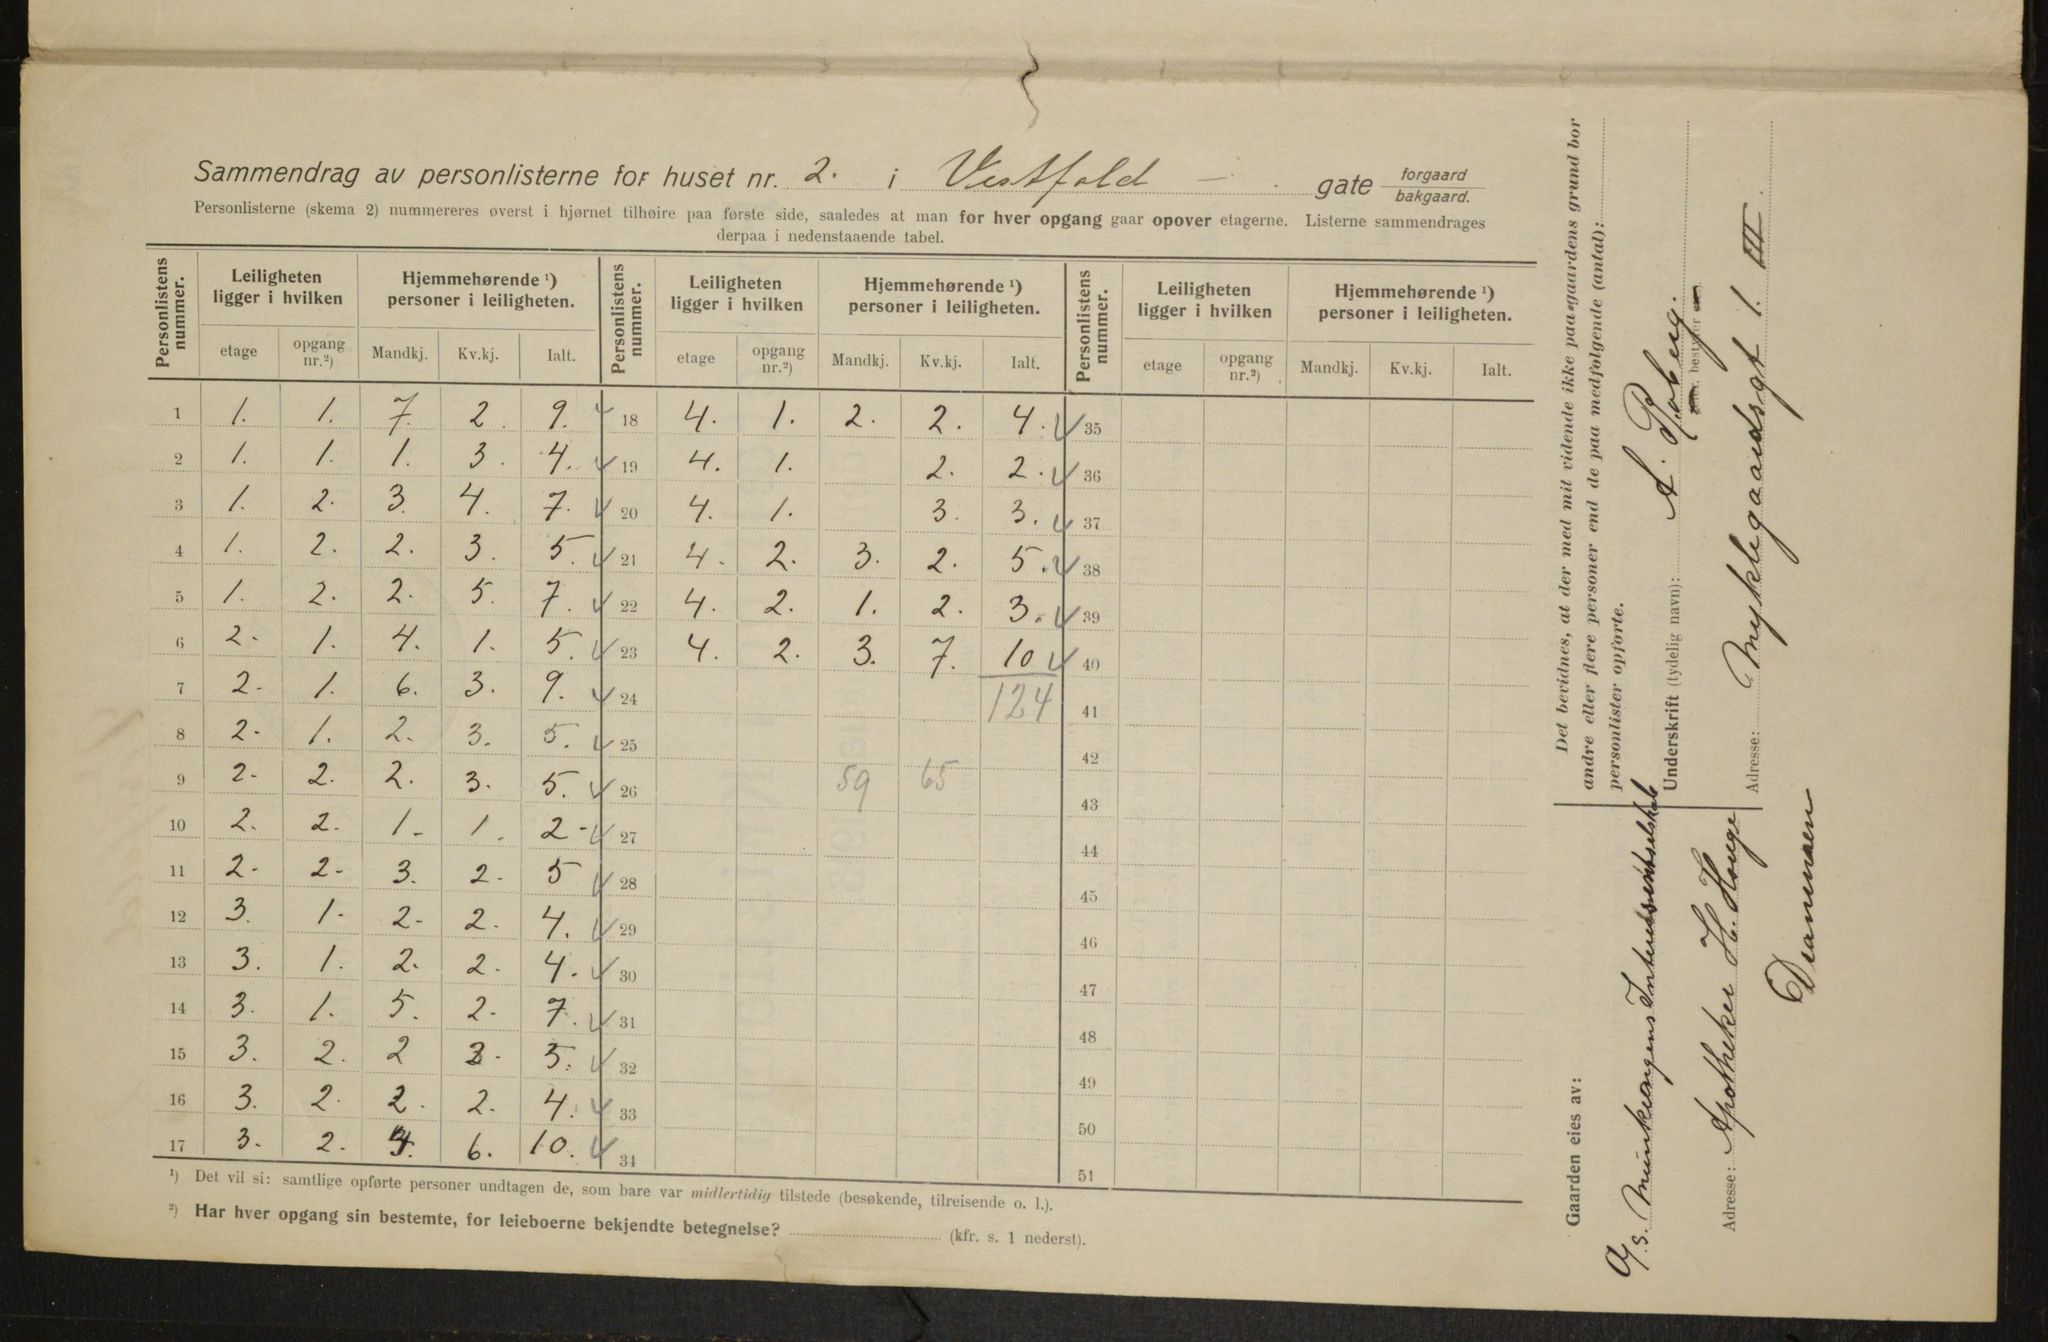 Sammendrag av personlisterne for huset nr. 2. i Vestfold - gate forgaard bakgaard.
Personlisterne (skema 2) nummereres øverst i hjørnet tilhøire paa første side, saaledes at man for hver opgang gaar opover etagerne. Listerne sammendrages
derpaa i nedenstaaende tabel.
Personlistens nummer. Leiligheten ligger i hvilken Hjemmehørende ¹) personer i leiligheten. Personlistens nummer. Leiligheten ligger i hvilken Hjemmehørende ¹) personer i leiligheten. Personlistens nummer. Leiligheten ligger i hvilken Hjemmehørende ¹) personer i leiligheten.
etage opgang nr.²) Mandkj. Kv.kj. Ialt. etage opgang nr.²) Mandkj. Kv.kj. Ialt. etage opgang nr.²) Mandkj. Kv.kj. Ialt.
1 1. 1. 7. 2. 9. 18 4. 1. 2. 2. 4. 35
2 1. 1. 1. 3. 4. 19 4. 1. 2. 2. 36
3 1. 2. 3. 4. 7. 20 4. 1. 3. 3. 37
4 1. 2. 2. 3. 5. 21 4. 2. 3. 2. 5. 38
5 1. 2. 2. 5. 7. 22 4. 2. 1. 2. 3. 39
6 2. 1. 4. 1. 5. 23 4. 2. 3. 7. 10 40
7 2. 1. 6. 3. 9. 24 124 41
8 2. 1. 2. 3. 5. 25 42
9 2. 2. 2. 3. 5. 26 59 65 43
10 2. 2. 1. 1. 2. 27 44
11 2. 2. 3. 2. 5 28 45
12 3. 1. 2. 2. 4. 29 46
13 3. 1. 2. 2. 4. 30 47
14 3. 1. 5. 2. 7. 31 48
15 3. 2. 2 3. 5. 32 49
16 3. 2. 2. 2. 4. 33 50
17 3. 2. 4. 6. 10. 34 51
¹) Det vil si: samtlige opførte personer undtagen de, som bare var midlertidig tilstede (besøkende, tilreisende o. l.).
²) Har hver opgang sin bestemte, for leieboerne bekjendte betegnelse? (kfr. s. 1 nederst).
Det bevidnes, at der med mit vidende ikke paa gaardens grund bor
andre eller flere personer end de paa medfølgende (antal):
personlister opførte.
Underskrift (tydelig navn): A.
bestyrer
Adresse: Myklegaardsgt 1. III.
Gaarden eies av:
A/s. Munkvangens Interessentselskab
Adresse: Apotheker H. Houge
Drammen